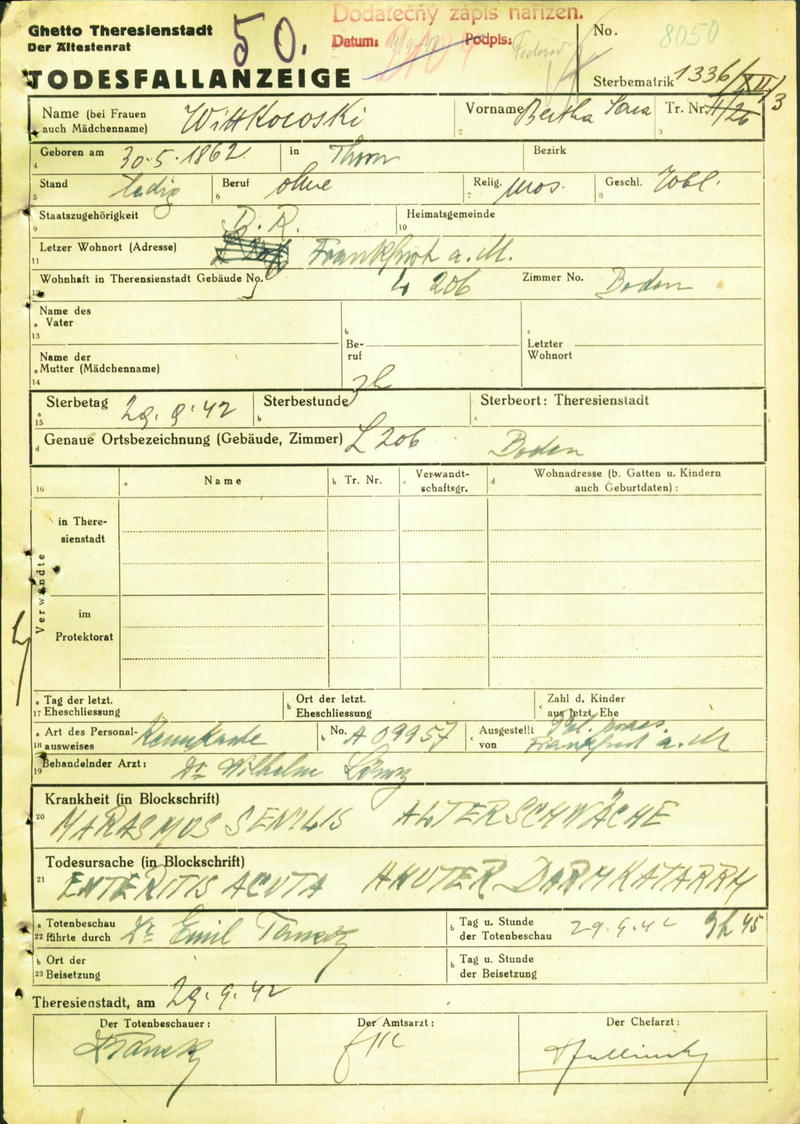 Ghetto Theresienstadt
Der Ältestenrat
50.
Dodatečný zápis nařízen.
Datum: Podpis:
No. 8050
TODESFALLANZEIGE
Sterbematrik 1336/XII/3
Name (bei Frauen auch Mädchenname) Wittkowski Vorname Bertha Sara Tr. Nr.
Geboren am 30.5.1862 in Thorn Bezirk
Stand ledig Beruf ohne Relig. mos. Geschl. weibl.
Staatszugehörigkeit D. R. Heimatsgemeinde
Letzer Wohnort (Adresse) Frankfurt a. M.
Wohnhaft in Theresienstadt Gebäude No. L 206 Zimmer No. Boden
Name des Vater Beruf Letzter Wohnort
Name der Mutter (Mädchenname)
Sterbetag 29.9.42 Sterbestunde 3h Sterbeort: Theresienstadt
Genaue Ortsbezeichnung (Gebäude, Zimmer) L 206 Boden
Name Tr. Nr. Verwandtschaftsgr. Wohnadresse (b. Gatten u. Kindern auch Geburtdaten):
Verwandte
in Theresienstadt
im Protektorat
Tag der letzt. Eheschliessung Ort der letzt. Eheschliessung Zahl d. Kinder aus letzt. Ehe
Art des Personalausweises Kennkarte No. A 09957 Ausgestellt von Pol. praes. Frankfurt a. M
Behandelnder Arzt: Dr Wilhelm Löwy
Krankheit (in Blockschrift)
MARASMUS SENILIS ALTERSCHWÄCHE
Todesursache (in Blockschrift)
ENTERITIS ACUTA AKUTER DARMKATARRH
Totenbeschau führte durch Dr Emil Tag u. Stunde der Totenbeschau 29.9.42 9h 45
Ort der Beisetzung Tag u. Stunde der Beisetzung
Theresienstadt, am 29.9.42
Der Totenbeschauer: Der Amtsarzt: Der Chefarzt: